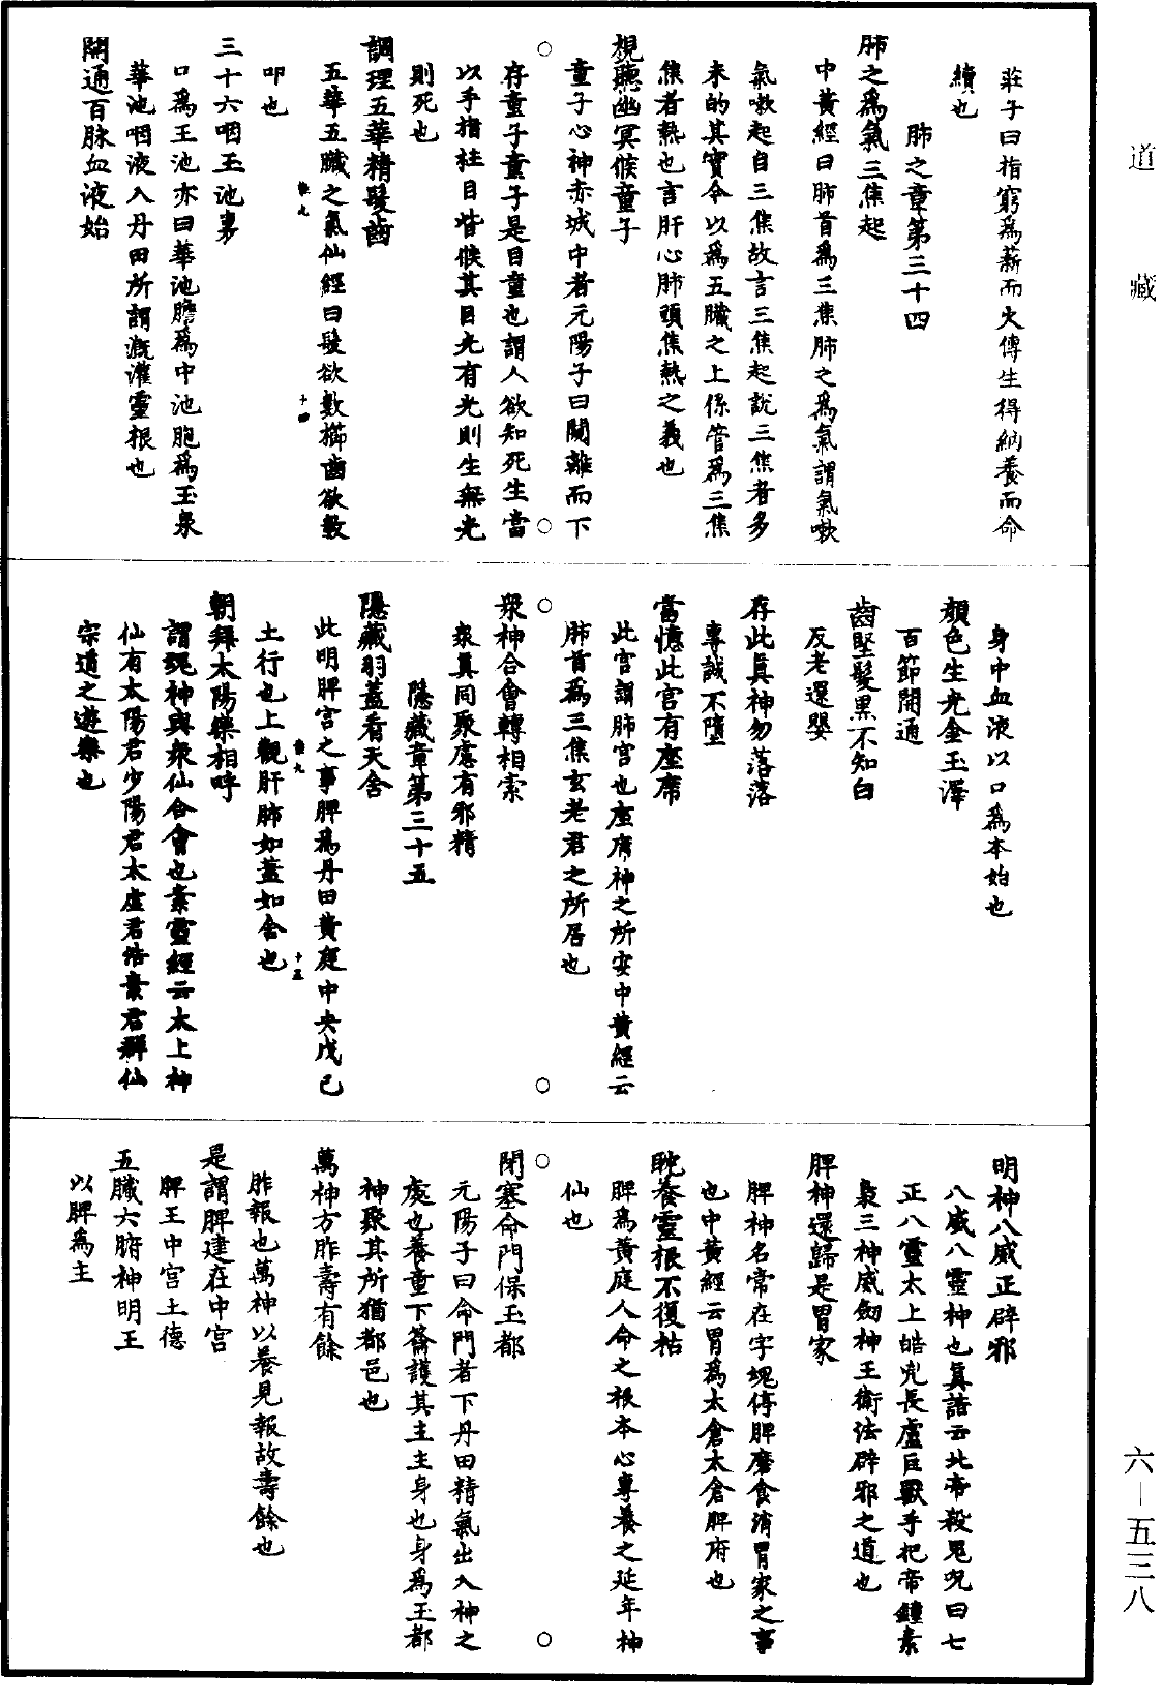 道藏
莊子曰指窮為薪而火傳生得納養而命
續也
肺之章第三十四
肺之為氣三焦起
中黃經曰肺首為三焦肺之為氣謂氣嗽
氣嗽起自三焦故言三焦起說三焦者多
未的其實今以為五臟之上係管為三焦
焦者熱也言肝心肺頭焦熱之義也
視聽幽冥候童子
童子心神赤城中者元陽子曰闚離而下
存童子童子是目童也謂人欲知死生當
以手指柱目眥候其目光有光則生無光
則死也
調理五華精髮齒
五華五臟之氣仙經曰髮欲數櫛齒欲數
叩也
三十六咽玉池裏
口為玉池亦曰華池膽為中池胞為玉泉
華池咽液入丹田所謂溉灌靈根也
開通百脉血液始
身中血液以口為本始也
顏色生光金玉澤
百節開通
齒堅髮黑不知白
反老還嬰
存此真神勿落落
專誠不墮
當憶此宮有座席
此宮謂肺宮也座席神之所安中黃經云
肺首為三焦玄老君之所居也
衆神合會轉相索
衆真同聚慮有邪精
隱藏章第三十五
隱藏羽蓋看天舍
此明脾宮之事脾為丹田黃庭中央戊己
土行也上觀肝肺如蓋如舍也
朝拜太陽樂相呼
謂魂神與衆仙合會也素靈經云太上神
仙有太陽君少陽君太虛君浩素君群仙
宗道之遊樂也
明神八威正辟邪
八威八靈神也真誥云北帝殺鬼呪曰七
正八靈太上皓兇長盧巨獸手把帝鐘素
梟三神威劒神王衛法辟邪之道也
脾神還歸是胃家
脾神名常在字魂停脾磨食消胃家之事
也中黃經云胃為太倉太倉脾府也
耽養靈根不復枯
脾為黃庭人命之根本心專養之延年神
仙也
閉塞命門保玉都
元陽子曰命門者下丹田精氣出入神之
處也養童下齎護其主主身也身為玉都
神聚其所猶都邑也
萬神方胙壽有餘
胙報也萬神以養見報故壽餘也
是謂脾建在中宮
脾王中宮土德
五臟六腑神明王
以脾為主
六－五三八